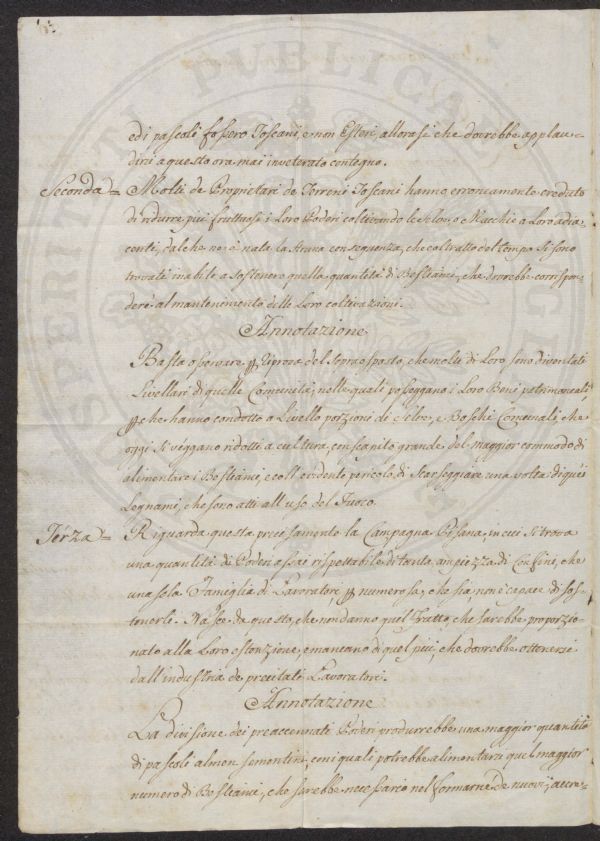 edi pascoli fossero Toscani, e non Esteri, allora si che dovrebbe applau-
dirsi a questo ora mai inveterato contegno.
Seconda = Molti de Proprietari de Terreni Toscani hanno erroneamente creduto
di ridurre più fruttuosi i Loro Poderi coltivando le Selve, o Macchie a Loro adia-
centi, dal che ne è nata la strana conseguenza, che coltratto del tempo si sono
trovati inabili a sostenere quella quantità di Bestiami, che dovrebbe corrispon-
dere al mantenimento delle Loro coltivazioni.
Annotazione
Basta osservare riprova del sopra esposto, che molti di Loro sono diventati
Livellari di quelle Comunità, nelle quali posseggano i Loro Beni patrimoniali,
che hanno condotto a Livello porzioni di Selve, e Boschi Comunali, che
oggi si véggano ridotti a cultura, con scapito grande del maggior commodo di
alimentare i Bestiami, e coll'evidente pericolo, di scarseggiare una volta di quei
Legnami, che sono atti all'uso del Fuoco.
Terza = Riguarda questa precisamente la Campagna Pisana, in cui si trova
una quantità di Poderi assai rispettabile di tanta ampiezza di Confini, che
una sola Famiglia di Lavoratori, numerosa, che sia non è capace di sos-
tenerli. Nasce da questo, che non danno quel Frutto, che sarebbe proporzio-
nato alla Loro estenzione, e mancano di quel più, che dovrebbe ottenersi
dall'industria de precitati Lavoratori.
Annotazione
La divisione dei preaccennati Poderi produrrebbe una maggior quantità
di pascoli almen sementini, con i quali potrebbe alimentarsi quel maggior
numero di Bestiami, che sarebbe necessario nel formarne de nuovi, accre-